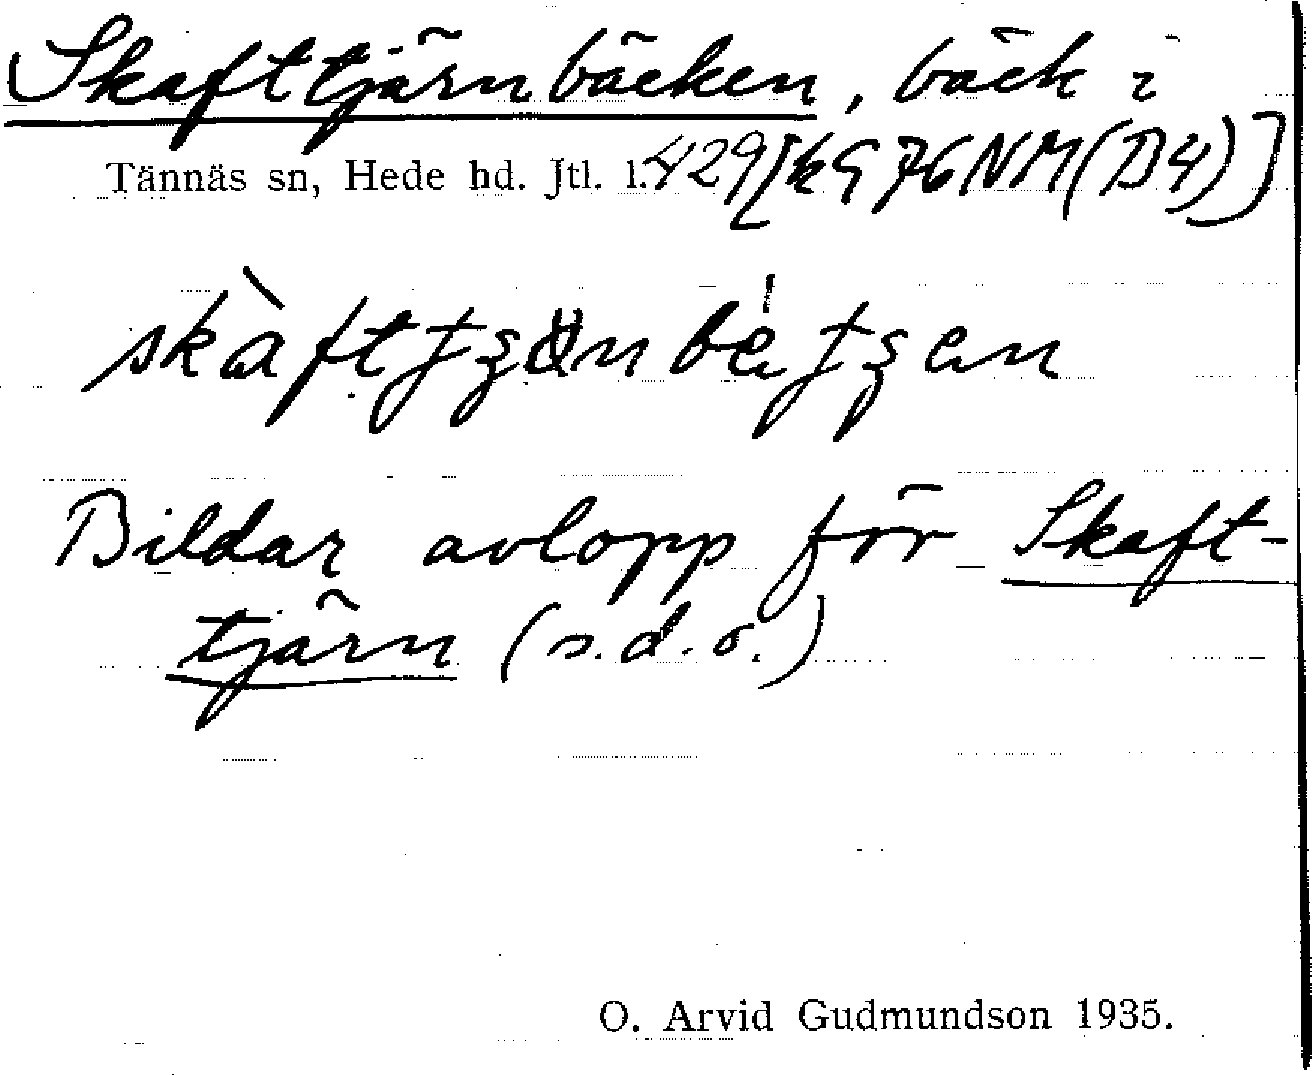 Skafttjärnbäcken, bäck i
Tännäs sn, Hede hd. Jtl. l. 429 [k976NM(B4)]
Bildar avlopp för Skaft-
tjärn (s.d.o.)
O. Arvid Gudmundson 1935.